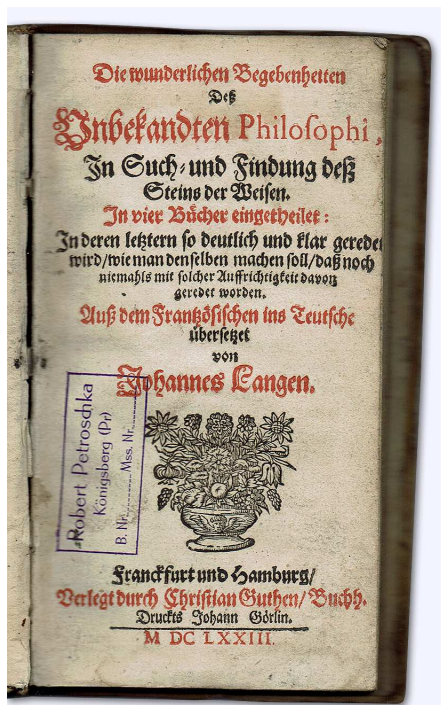 Die wunderlichen Begebenheiten
Deß
Unbekandten Philosophi,
In Such- und Findung deß
Steins der Weisen.
In vier Bücher eingetheilet:
In deren letztern so deutlich und klar geredet
wird/wie man denselben machen soll/daß noch
niemahls mit solcher Auffrichtigkeit davon
geredet worden.
Auß dem Frantzösischen ins Teutsche
übersetzet
von
Johannes Langen.
Robert Petroschka
Königsberg (Pr)
B. Nr. Mss. Nr.
Franckfurt und Hamburg/
Verlegt durch Christian Guthen/ Buchh.
Druckts Johann Görlin.
M DC LXXIII.